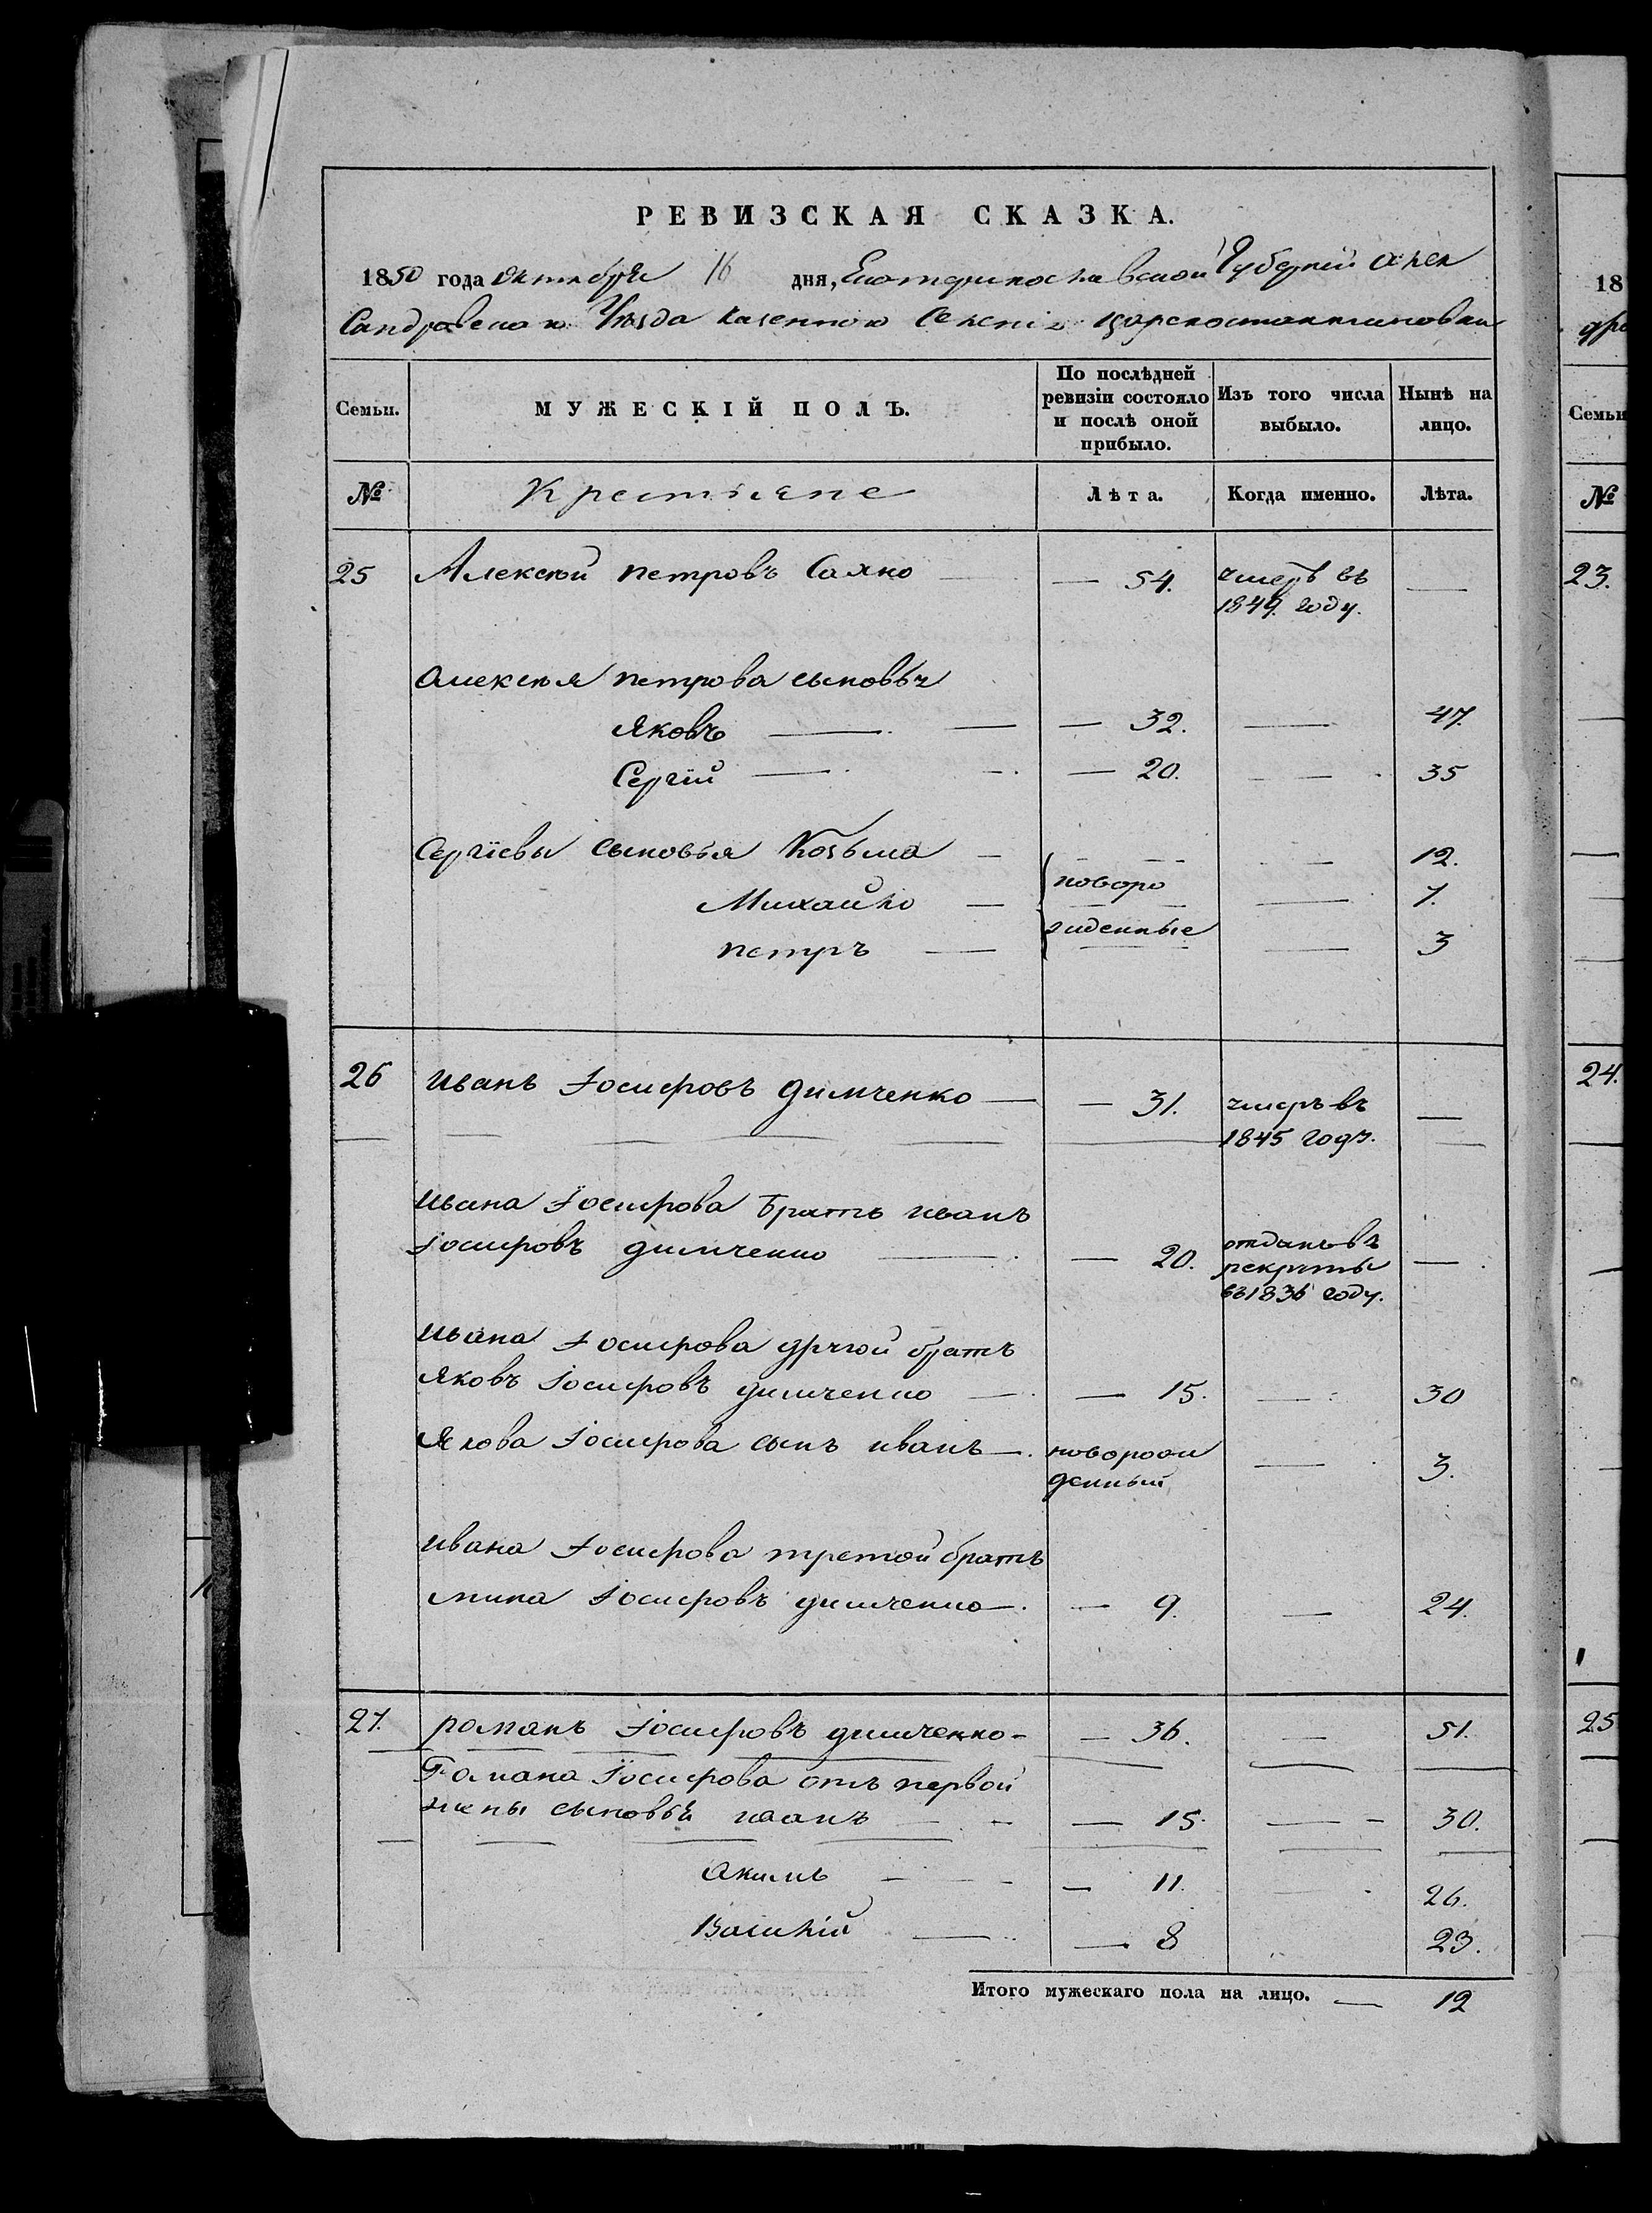 РЕВИЗСКАЯ СКАЗКА.
1850 года октября 16 дня, Екатеринославской Губерніи Алек
сандровскаго Уѣзда казеннаго селенія Царскостантиновки
Семьи.
МУЖЕСКІЙ ПОЛЪ.
По послѣдней ревизіи состояло и послѣ оной прибыло.
Изъ того числа выбыло.
Нынѣ на лицо.
№
Крестьяне
Лѣта.
Когда именно.
Лѣта.
25 Алексѣй петровъ Саяко — 54. умеръ въ 1849 году. —
Алексѣя петрова сыновья
Яковъ — 32. — 47.
Сергій — 20. — 35
Сергіевы сыновья Козьма — 12.
новоро
Михайло — 7.
жденные
петръ — 3
26 иванъ Іосифовъ димченко — 31. умеръ въ —
1845 году.
ивана Іосифова братъ иванъ
Іосифовъ димченко — 20. отданъ въ рекруты въ 1836 году. —
ивана Іосифова другой братъ
Яковъ Іосифовъ димченко — 15. — 30
Якова Іосифова сынъ иванъ — новорож
денный — 3.
ивана Іосифова третой братъ
мина Іосифовъ димченко — 9. — 24.
27. романъ Іосифовъ димченко — 36. — 51.
Романа Іосифова отъ первой
жены сыновья иванъ — 15. — 30.
Акимъ — 11. 26.
Василій — 8 23.
Итого мужескаго пола на лицо. — 12
18
Семьи
№
23.
24.
25